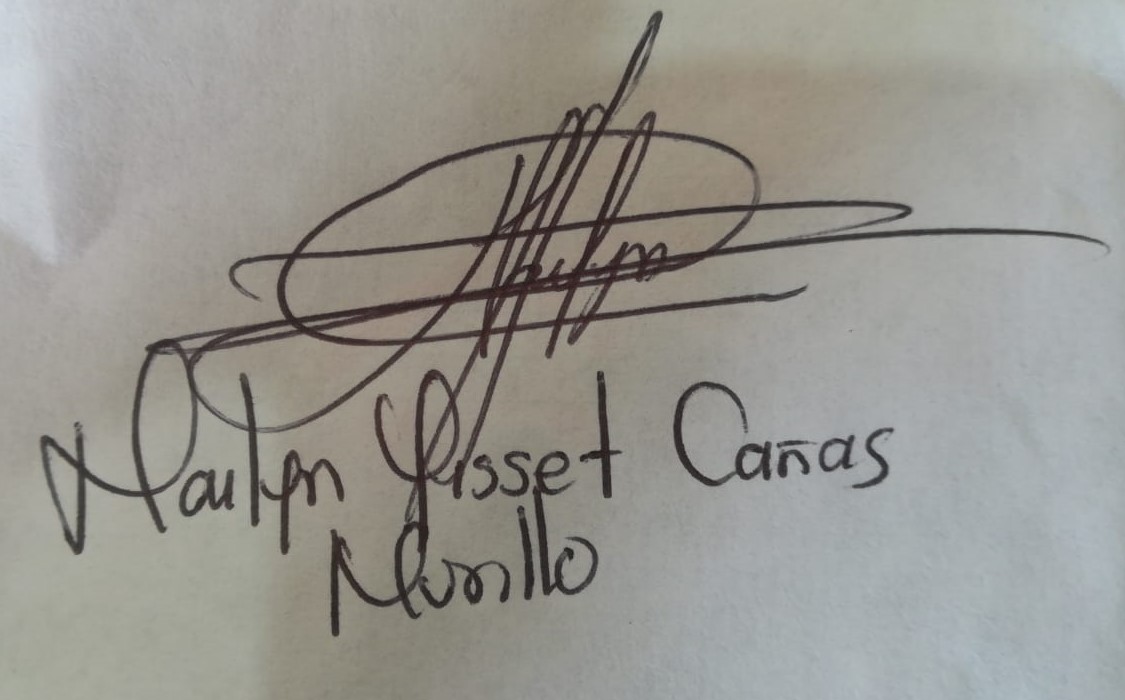 Mailyn Yisset Cañas
Murillo